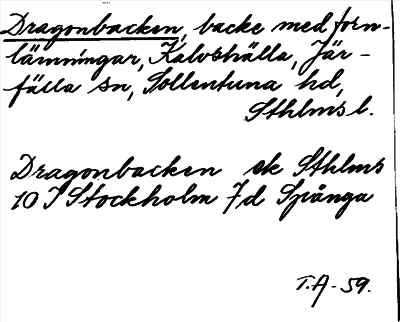 Dragonbacken, backe med forn-
lämningar, Kalvshälla, Jär-
fälla sn, Sollentuna hd,
Sthlms l.
Dragonbacken ek Sthlms
10 I Stockholm 7d Spånga
T.A-59.